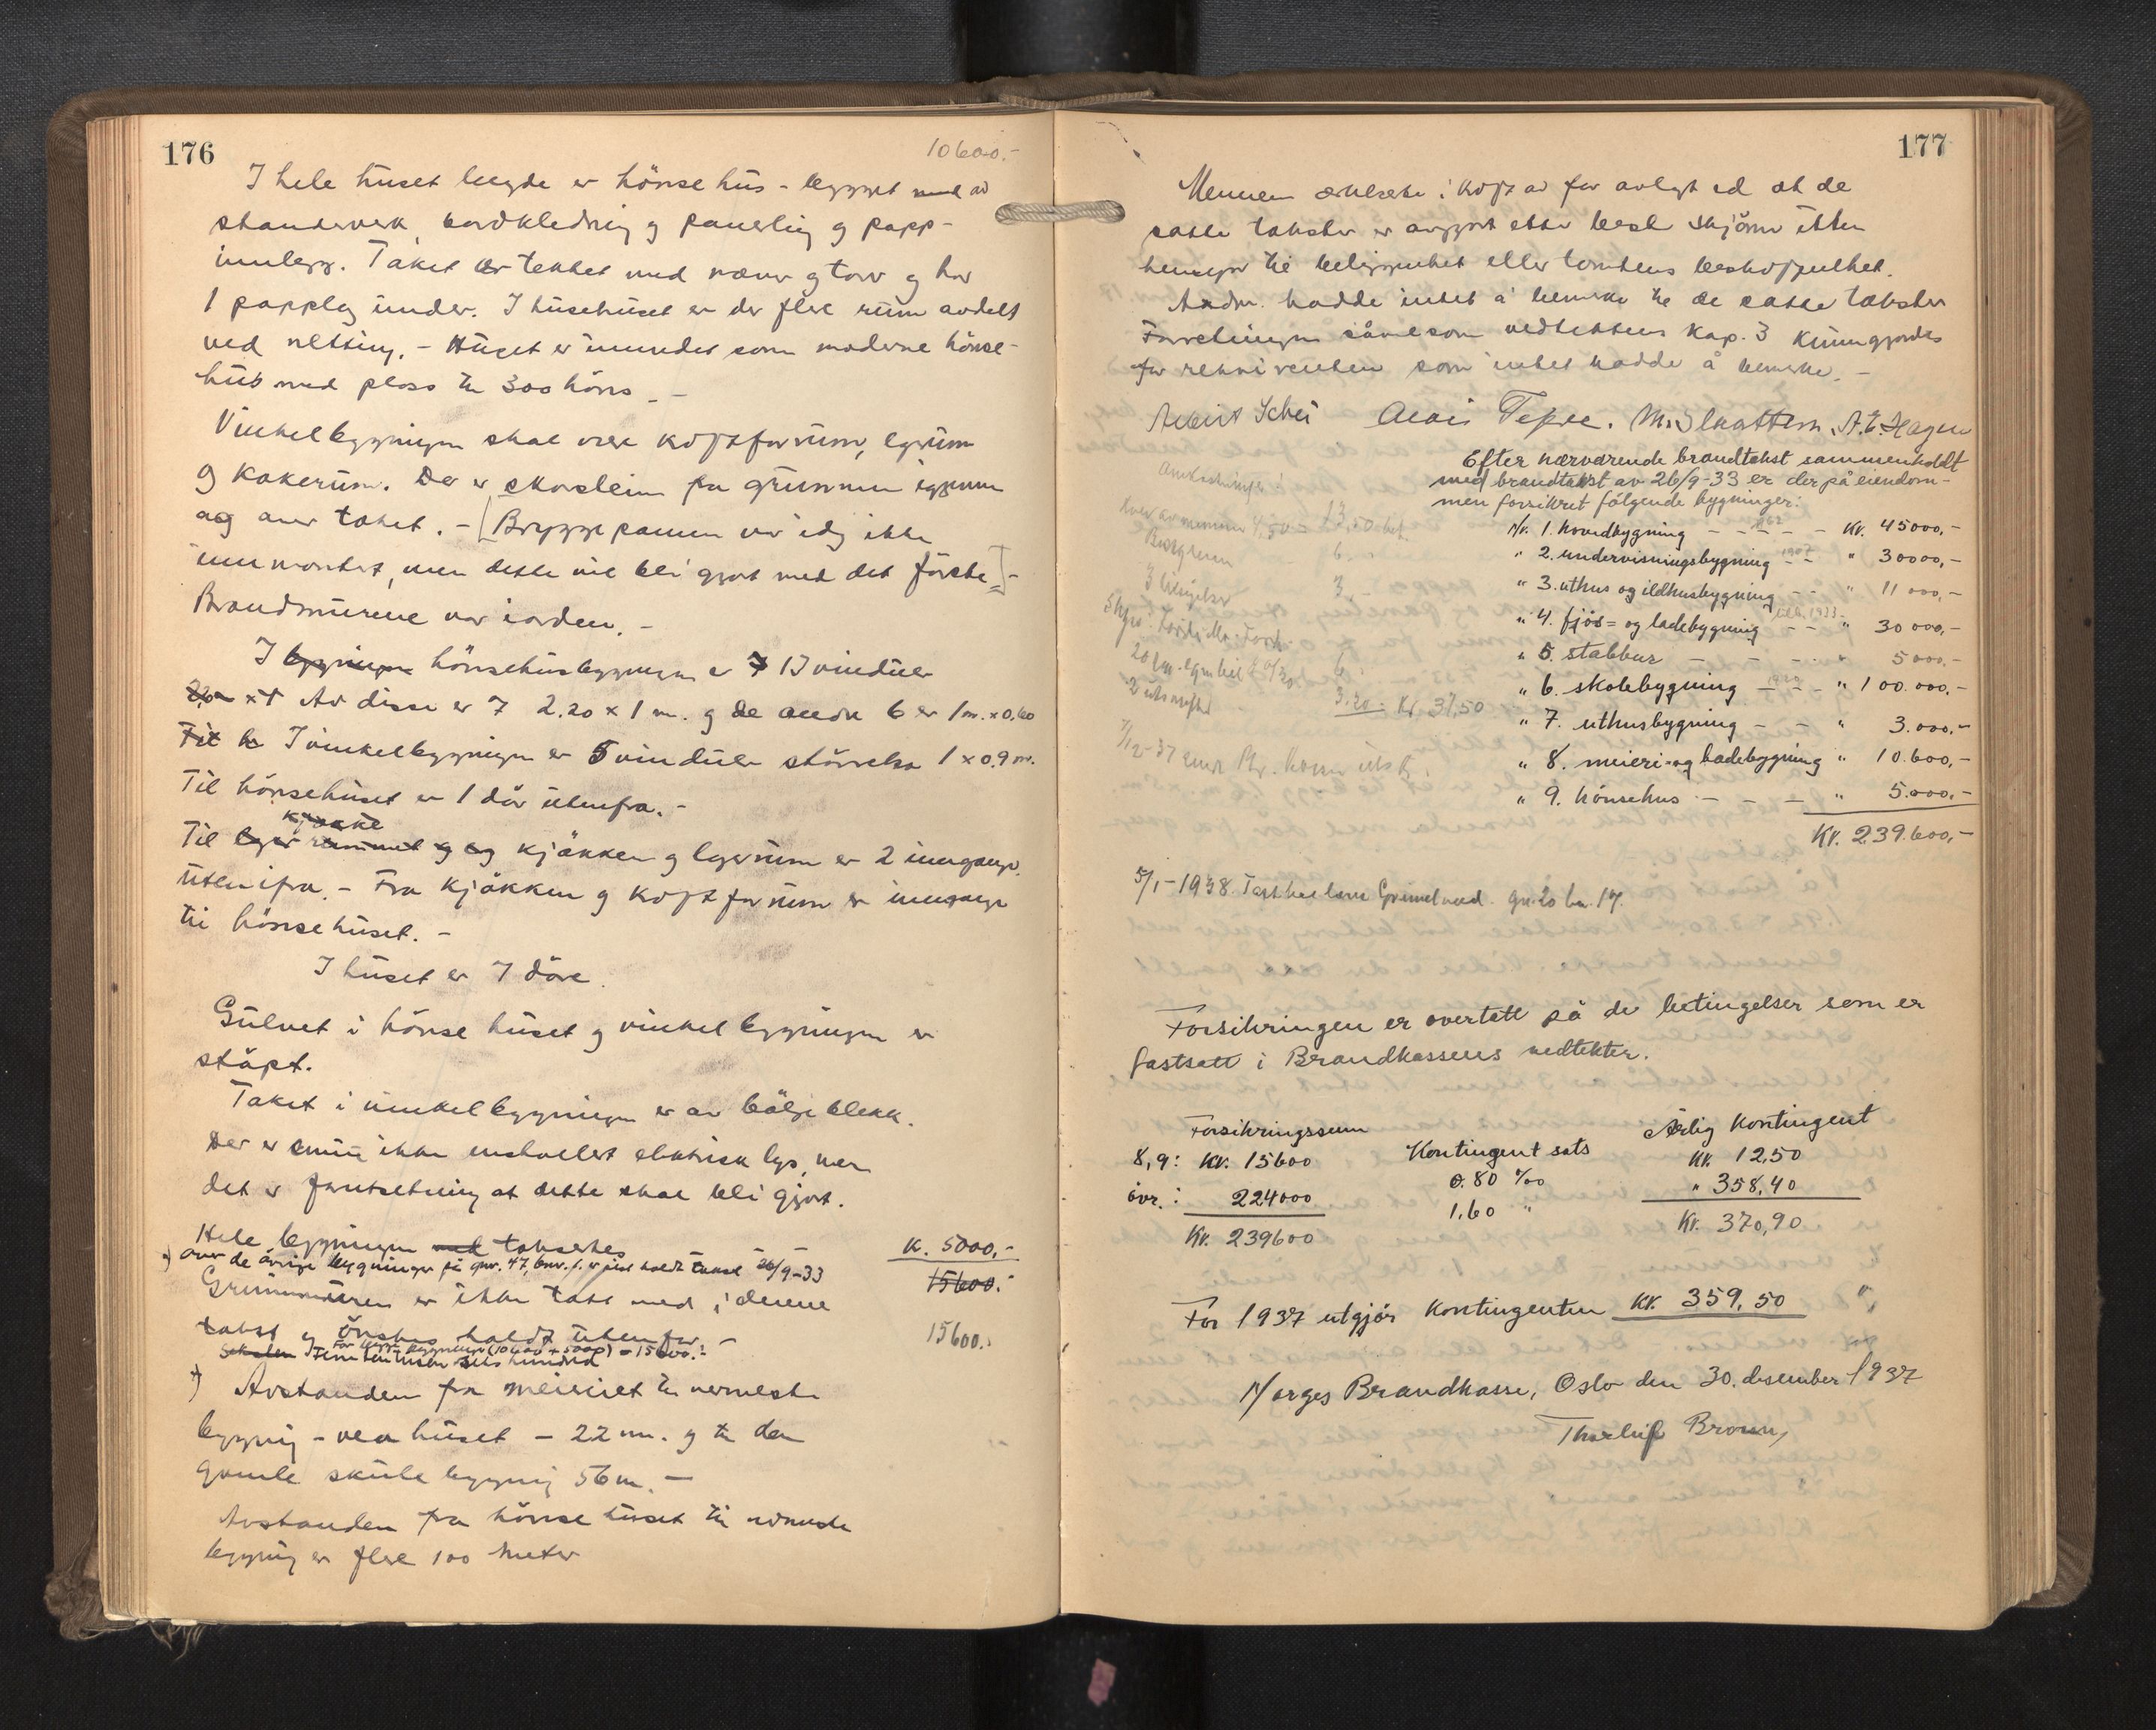 176
10600.-
I hele huset lengde er hönsehus - bygget med av
standerverk, bordkledning og panerling og papp-
innlegg. Taket er tekket med never og torv og har
1 papplag under. I hüsehuset er der flere rum avdelt
ved netting. - Huset er innredet som moderne hönse-
hus med plass til 300 höns -
Vinkelbygningen skal være kraftforrum, lagrum
og kokerum. Der er skorstein fra grunnen igjennem
og over taket. - [Bryggepannen var idag ikke
innmontert, men dette vil bli gjort med det förste] -
Brandmurene var iorden. -
I bygningen hönsehusbygningen er 13 vinduer
Av disse er 7 2.20 x 1 m. og de andre 6 er 1 m. x 0.60
I vinkelbygningen er 5 vinduer störrelse 1 x 0.9 m.
Til hönsehuset er 1 dör utenfra. -
kjökke
Til lager rummet og og kjökken og lagerrum er 2 innganger
utenifra. - Fra kjökken og kraftforrum er innganger
til hönsehuset. -
I huset er 7 döre.
Gulvet i hönsehuset og vinkelbygningen er
stöpt.
Taket i vinkelbygningen er av bölgeblekk.
Der er ennu ikke installert elektrisk lys, men
det er forutsetning at dette skal bli gjort.
Hele bygningen takseres K. 5000,-
over de övrige bygninger på gnr. 47, bnr. 1. er sist holdt takst 26/9-33
15600.-
Grunnmuren er ikke tatt med i denne
takst og önskes holdt utenfor. - 15600.-
For begge bygninger (10600 + 5000) = 15600.-
Femtentusen seks hundred
Avstanden fra meieriet til nermeste
bygning - vedhuset - 22 m. og til den
gamle skule bygning 56 m. -
Avstanden fra hönsehuset til nærmeste
bygning er flere 100 meter
177
Mennene erklærte i kraft av før avlagt ed at de
satte takster er avgjort efter beste skjönn uten
hensyn til beliggenhet eller tomtens beskaffenhet.
Andre hadde intet å bemerke til de satte takster
Forretningen såvelsom vedtektens Kap. 3 kunngjordes
for rekvirenten som intet hadde å bemerke. -
A. E. Hagen
Efter nærværende brandtakst sammenholdt
med brandtakst av 26/9-33 er der på eiendom-
men forsikret fölgende bygninger:
Nr. 1. hovedbygning - - - - Kr. 45000,-
" 2. undervisningsbygning - - " 30000,-
" 3. uthus og ildhusbygning - - " 11000,-
" 4. fjös= og ladebygning - - " 30000,-
" 5. stabbur - - - - 5000.-
" 6. skolebygning - - - " 100.000,-
" 7. uthusbygning - - " 3.000,-
" 8. meieri- og badebygning " 10.600,-
" 9. hönsehus - - - " 5.000,-
Kr. 239.600,-
4,50 = 13,50
6.
3 3.-
6
3.20 = Kr. 37.50
5/1-1938. gnr. 20 bnr. 17.
Forsikringen er overtatt på de betingelser som er
fastsatt i Brandkassens vedtekter.
Forsikringssum Kontingent sats Årlig Kontingent
8,9: Kr. 15600 0.80 ‰ Kr. 12,50
övr.: 224000 1,60 " " 358,40
Kr. 239600 Kr. 370,90
For 1937 utgjör Kontingenten Kr. 359,50
Norges Brandkasse, Oslo den 30. desember 1937